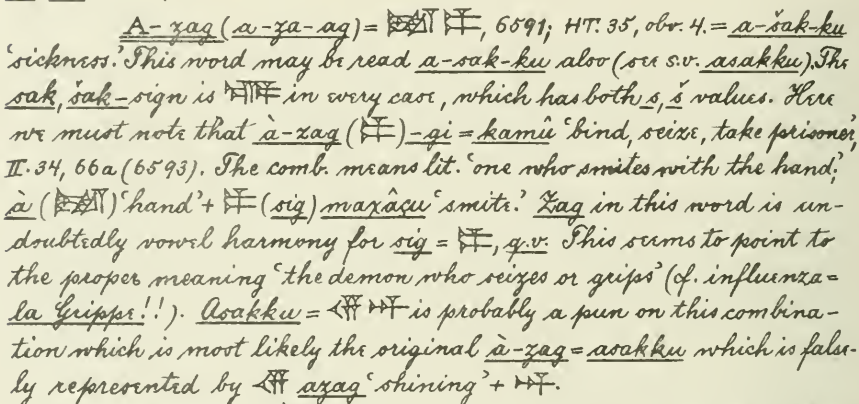 A-zag (a-za-ag) = 𒀉 𒉺, 6591; HT. 35, obv. 4. = a-šak-ku
'sickness.' This word may be read a-sak-ku also (see s.v. asakku). The
sak, šak-sign is in every case, which has both s, š values. Here
we must note that à-zag (𒉺)-gi = kamû 'bind, seize, take prisoner,'
II. 34, 66a (6593). The comb. means lit. 'one who smites with the hand;'
à (𒀉) 'hand' + 𒉺 (sig) maxâçu 'smite.' Zag in this word is un-
doubtedly vowel harmony for sig = 𒉺, q.v. This seems to point to
the proper meaning 'the demon who seizes or grips' (cf. influenza =
la Grippe!!). Asakku = 𒀭 is probably a pun on this combina-
tion which is most likely the original à-zag = asakku which is false-
ly represented by azag 'shining' + 𒀭.